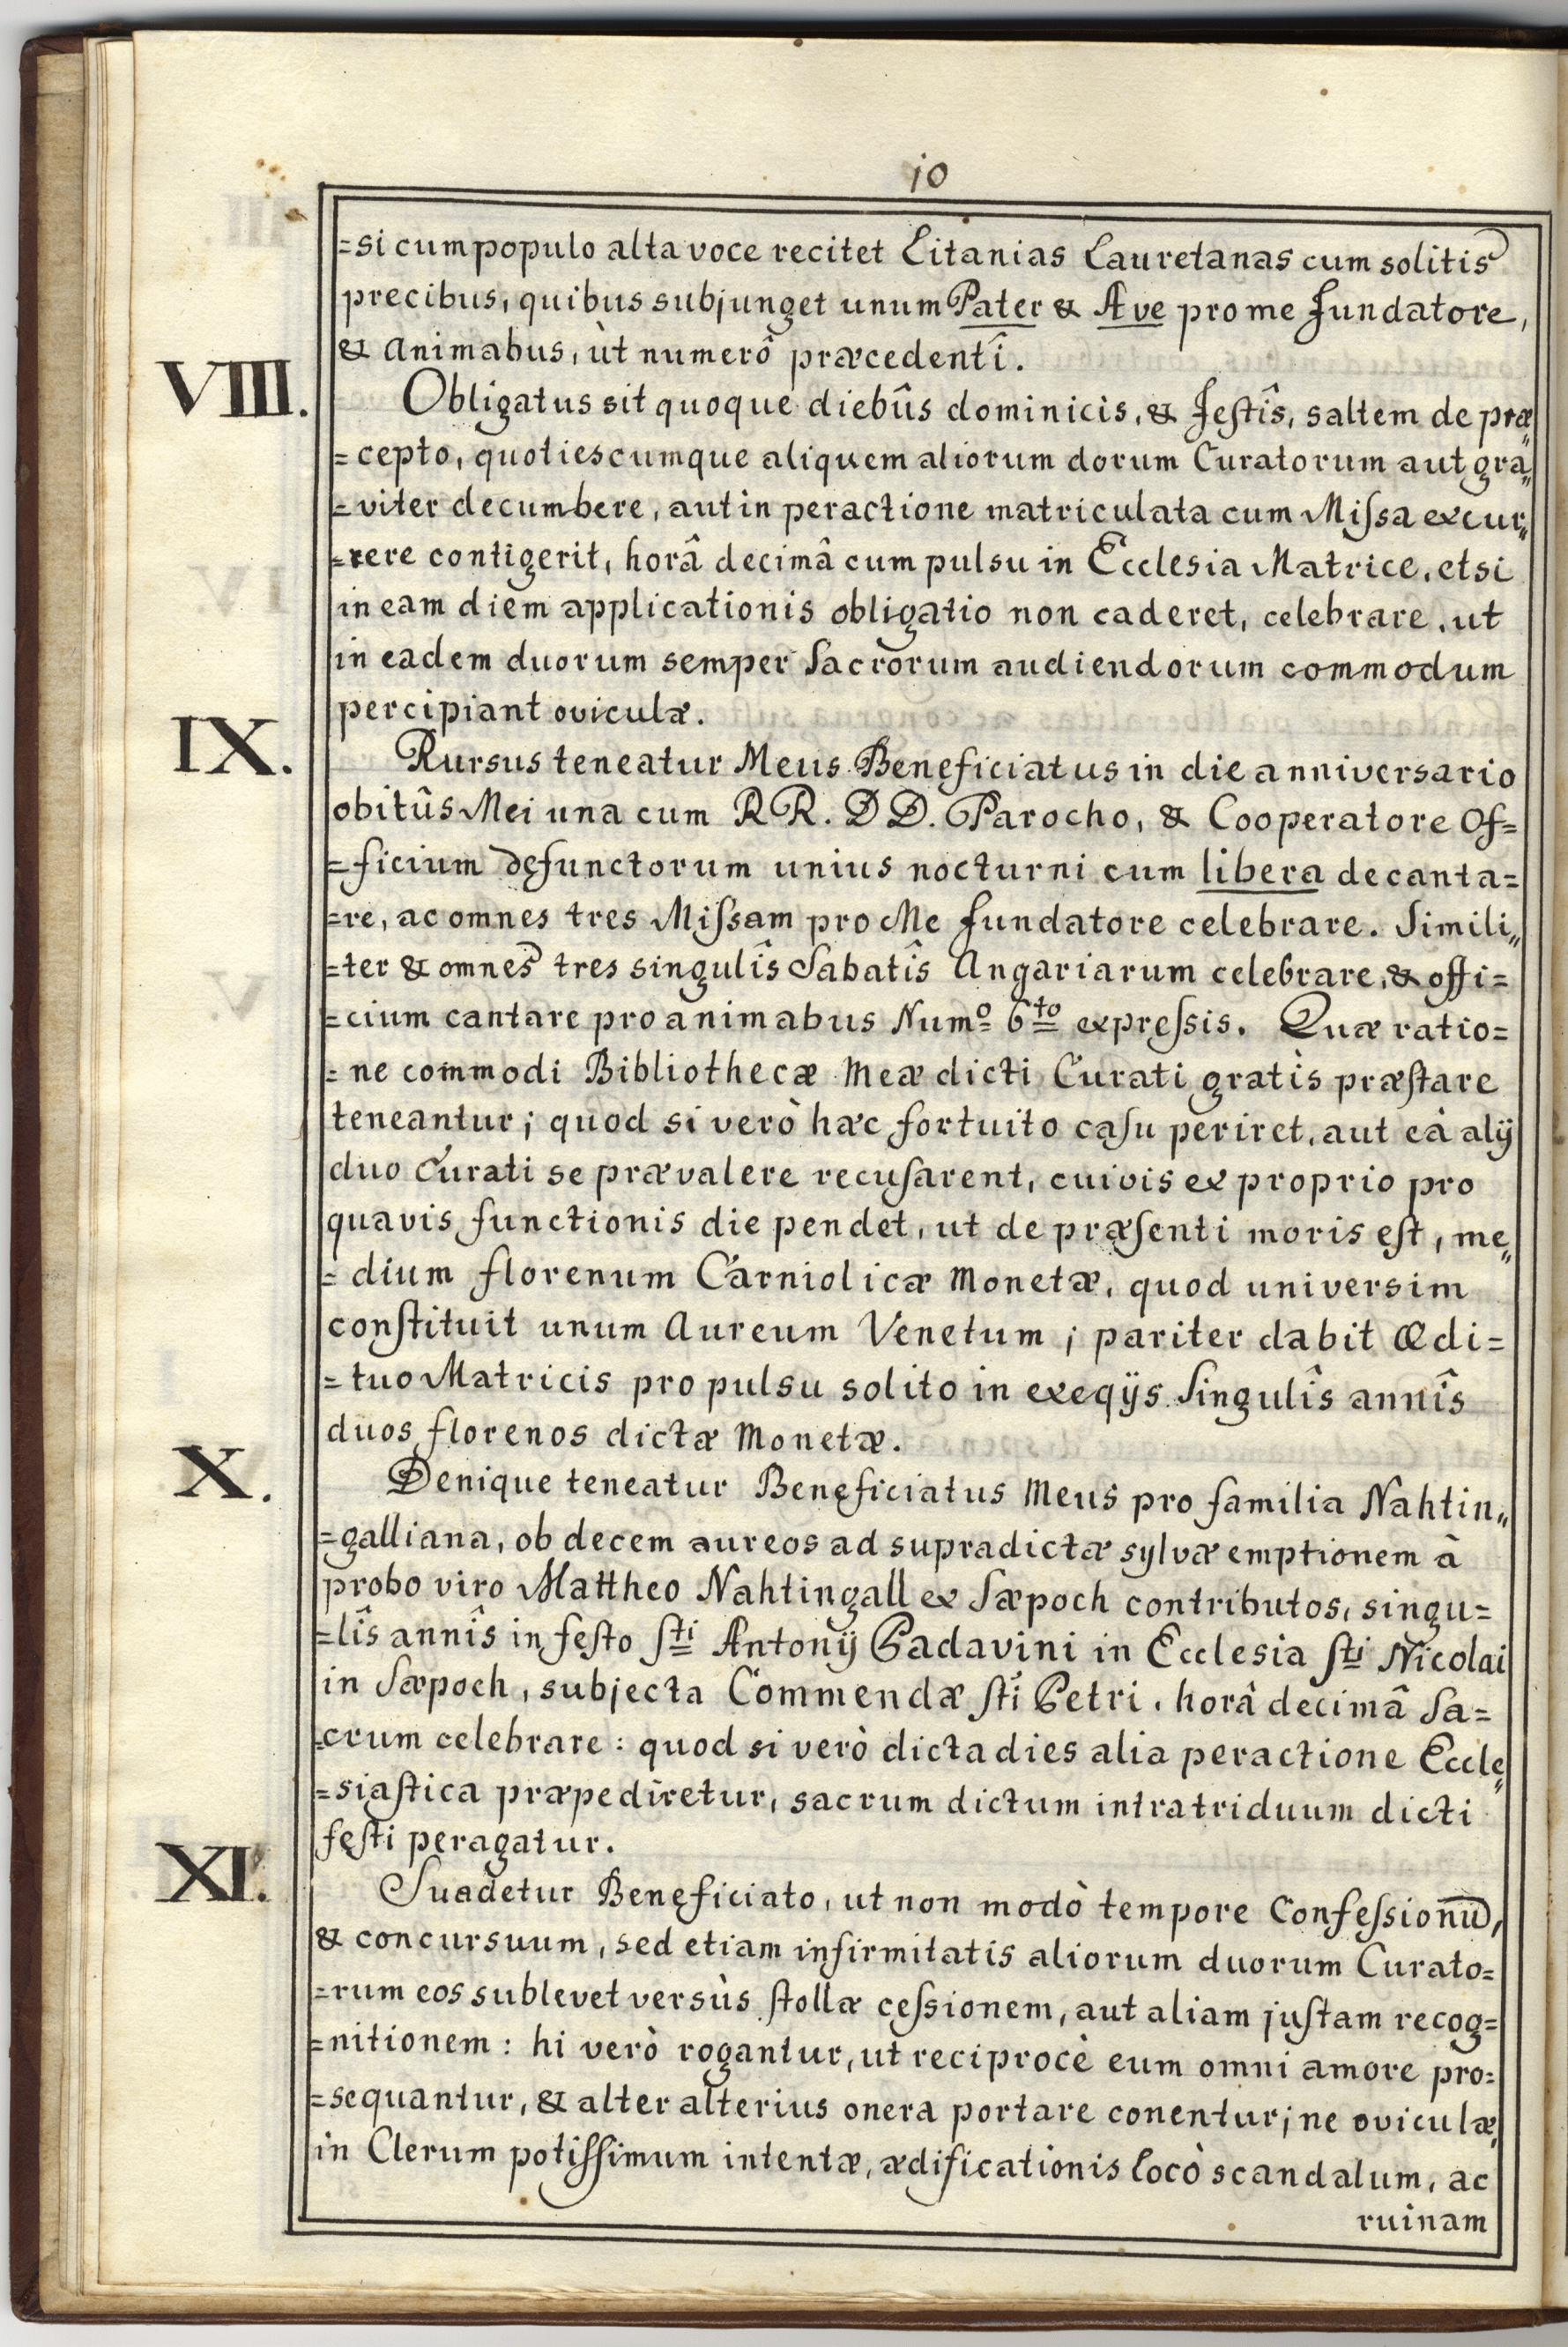 10
=si cum populo alta voce recitet Litanias Lauretanas cum solitis
precibus, quibus subjunget unum Pater & Ave pro me fundatore,
& Animabus, ùt numerô præcedentî.
VIII.
Obligatus sit quoque diebûs dominicis, & festîs, saltem de præ„
=cepto, quotiescumque aliquem aliorum dorum Curatorum aut gra„
=viter decumbere, aut in peractione matriculata cum Miſsa excur„
=rere contigerit, horâ decimâ cum pulsu in Ecclesia Matrice, etsi
in eam diem applicationis obligatio non caderet, celebrare, ut
in eadem duorum semper Sacrorum audiendorum commodum
percipiant oviculæ.
IX.
Rursus teneatur Meus Beneficiatus in die anniversario
obitûs Mei una cum RR. DD. Parocho, & Cooperatore Of=
=ficium defunctorum unius nocturni cum libera decanta=
=re, ac omnes tres Miſsam pro Me fundatore celebrare. Simili„
=ter & omnes tres singulîs Sabatîs Angariarum celebrare, & offi=
=cium cantare pro animabus Numo 6to expreſsis. Quæ ratio=
=ne commodi Bibliothecæ Meæ dicti Curati gratìs præſtare
teneantur; quod si verò hæc fortuito caſu periret, aut eâ alÿ
duo Curati se prævalere recuſarent, cuivis ex proprio pro
quavis functionis die pendet, ut de præſenti moris eſt, me„
=dium florenum Carniolicæ Monetæ, quod universim
conſtituit unum Aureum Venetum; pariter dabit Ædi=
=tuo Matricis pro pulsu solito in exeqÿs Singulîs annîs
duos florenos dictæ Monetæ.
X.
Denique teneatur Beneficiatus Meus pro familia Nahtin„
=galliana, ob decem aureos ad supradictæ sylvæ emptionem à
probo viro Mattheo Nahtingall ex Sæpoch contributos, singu=
=lîs annîs in feſto Sti Antonÿ Padavini in Ecclesia Sti Nicolai
in Sæpoch, subjecta Commendæ Sti Petri, horâ decimâ Sa=
=crum celebrare: quod si verò dicta dies alia peractione Eccle„
=siaſtica præpediretur, sacrum dictum intra triduum dicti
feſti peragatur.
XI.
Suadetur Beneficiato, ut non modò tempore Confeſsionū,
& concursuum, sed etiam infirmitatis aliorum duorum Curato=
=rum eos sublevet versùs ſtollæ ceſsionem, aut aliam juſtam recog=
=nitionem: hi verò rogantur, ut reciprocè eum omni amore pro=
=sequantur, & alter alterius onera portare conentur; ne oviculæ,
in Clerum potiſſimum intentæ, ædificationis locò scandalum, ac
ruinam